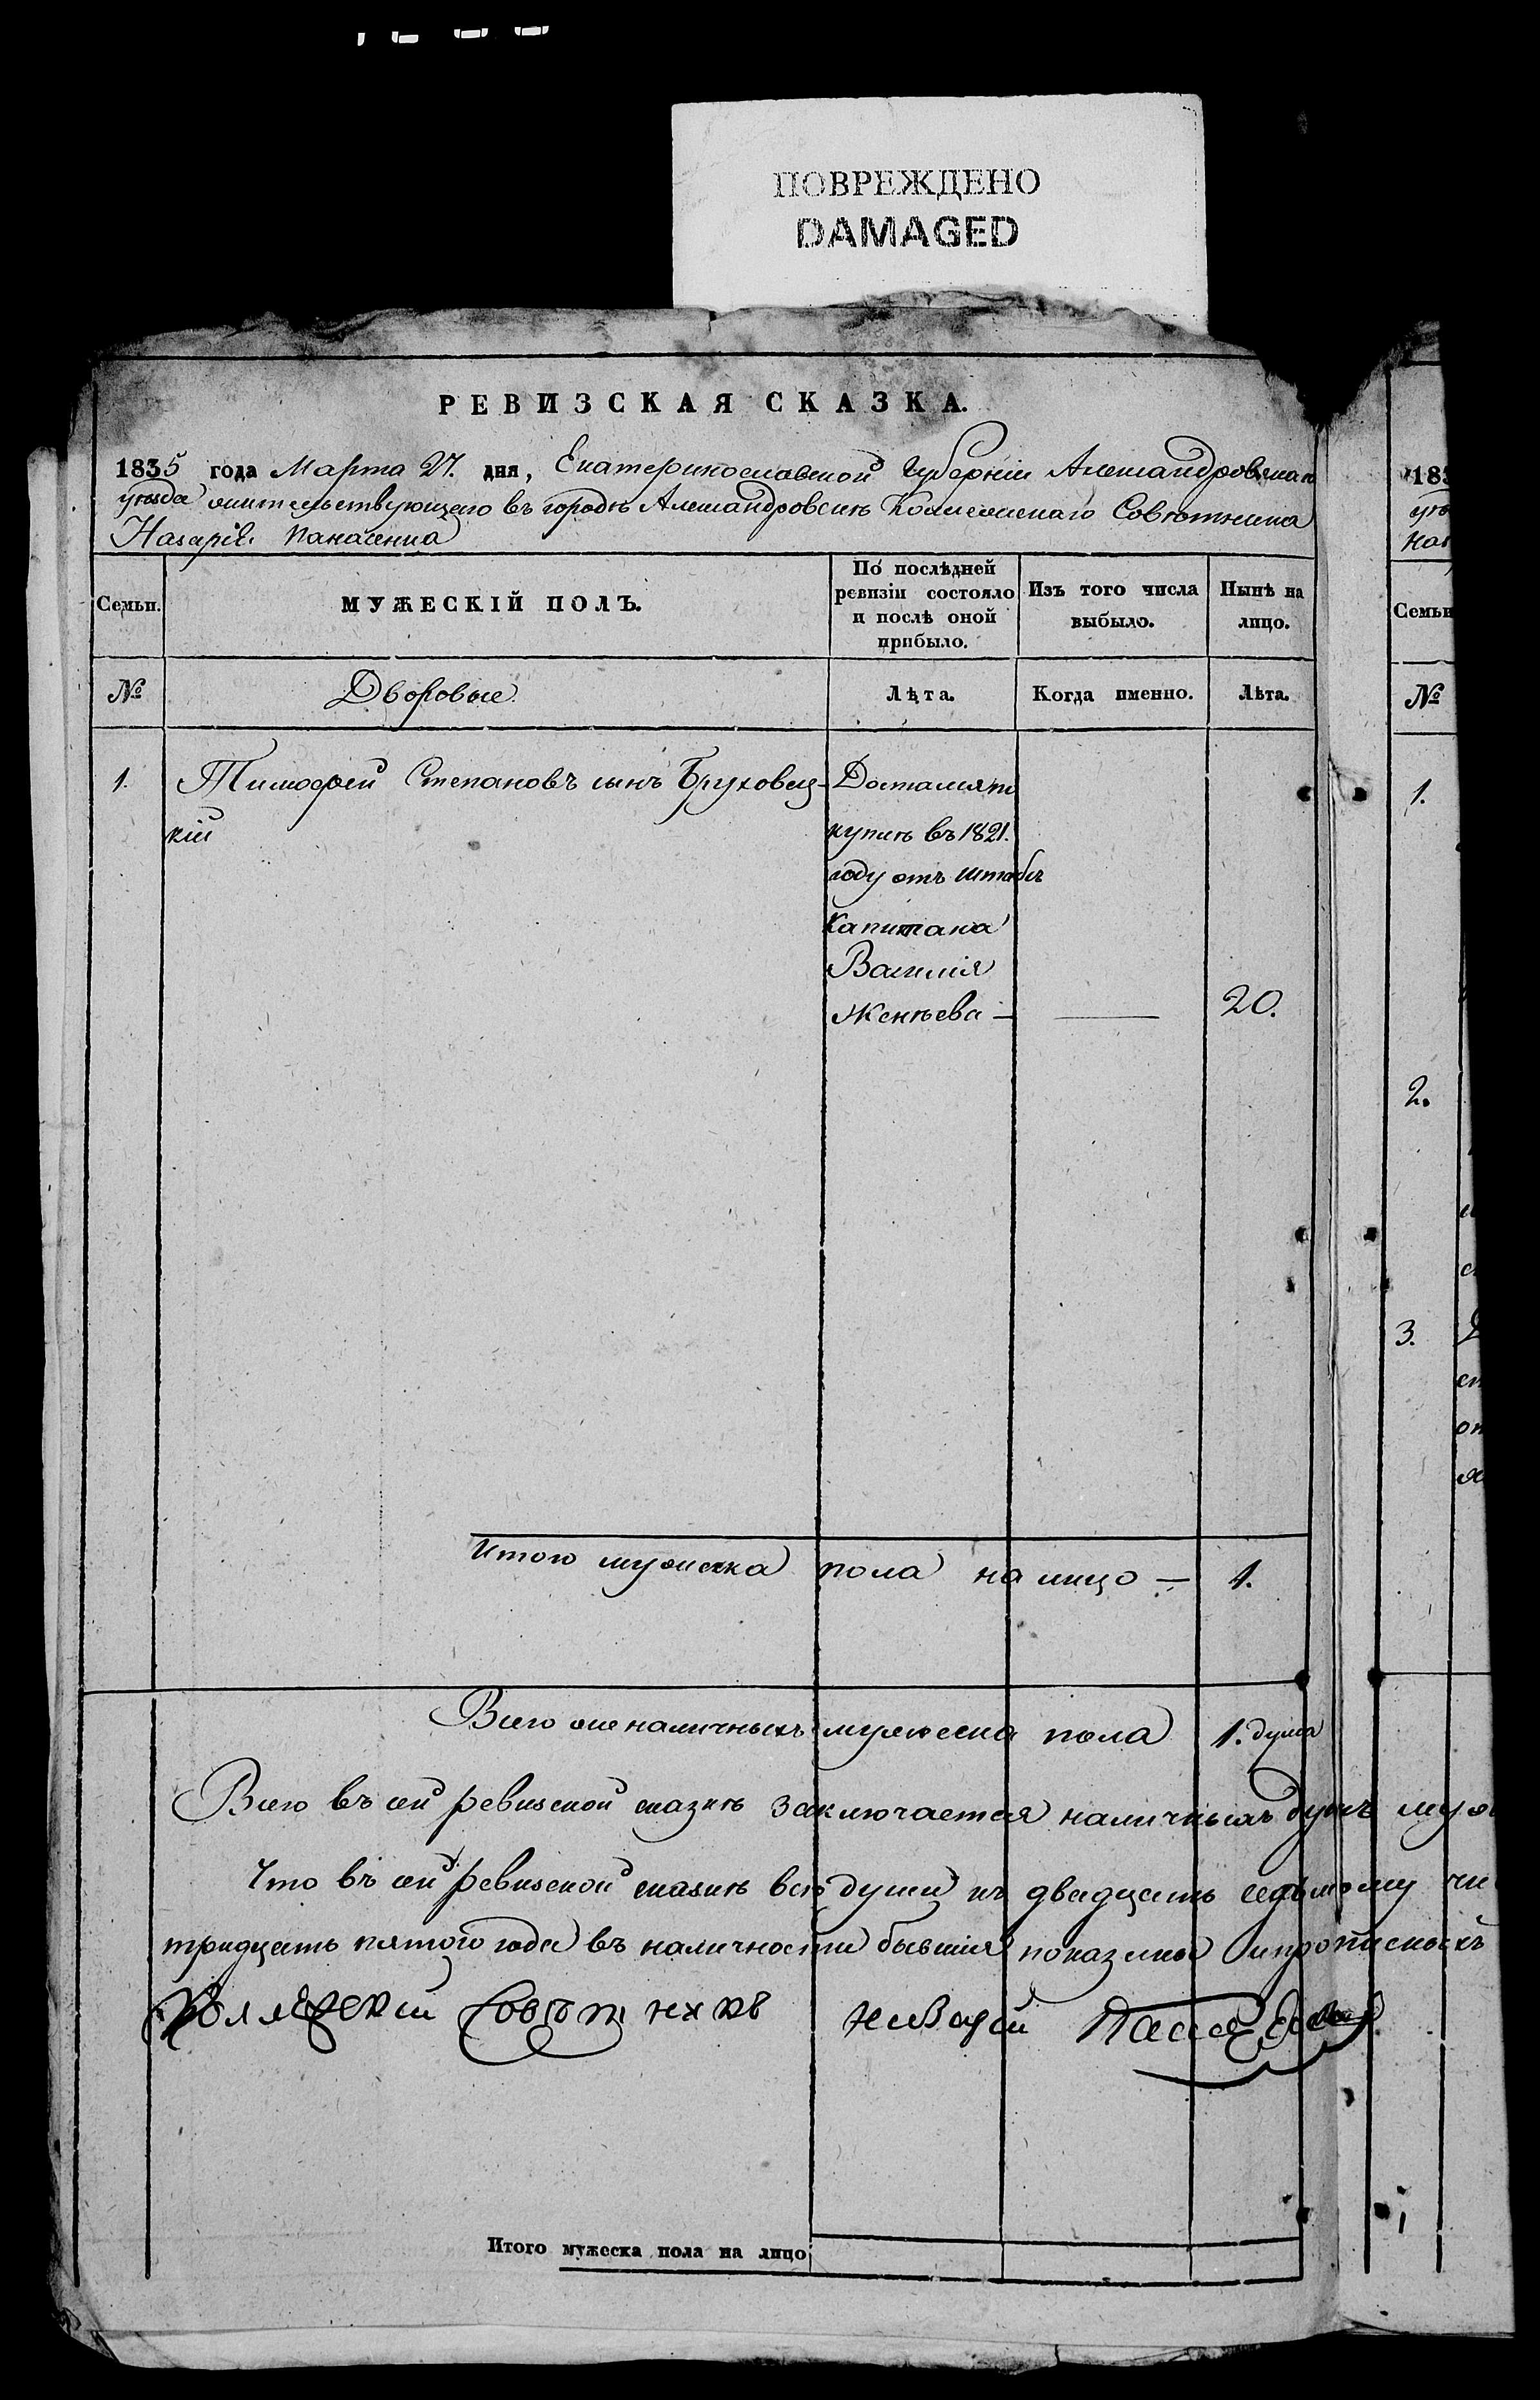 ПОВРЕЖДЕНО
DAMAGED
РЕВИЗСКАЯ СКАЗКА.
1835 года Марта 27. дня, Екатеринославской Губерніи Александровскаго
уѣзда жительствующаго въ городѣ Александровскѣ Коллежскаго Совѣтника
Назарія Панасенка
Семьи.
МУЖЕСКІЙ ПОЛЪ.
По послѣдней
ревизіи состояло
и послѣ оной
прибыло.
Изъ того числа
выбыло.
Нынѣ на
лицо.
№
Дворовые
Лѣта.
Когда именно.
Лѣта.
1. Тимофей Степановъ сынъ Бруховец-
кій
Достался по
купкѣ въ 1821.
году отъ Штабсъ
Капитана
Василія
— 20.
Итого мужеска пола на лицо — 1.
Всего же наличныхъ мужеска пола 1. душа
Всего въ сей ревизской сказкѣ заключается наличныхъ душъ муж
Что въ сей ревизской сказкѣ всѣ души къ двадцать седьмому чи
тридцать пятого года въ наличности бывшія показаны и прописныхъ
Коллежскій Совѣтникъ Назарій
Итого мужеска пола на лицо
183
Семьи
№
1.
2.
3.